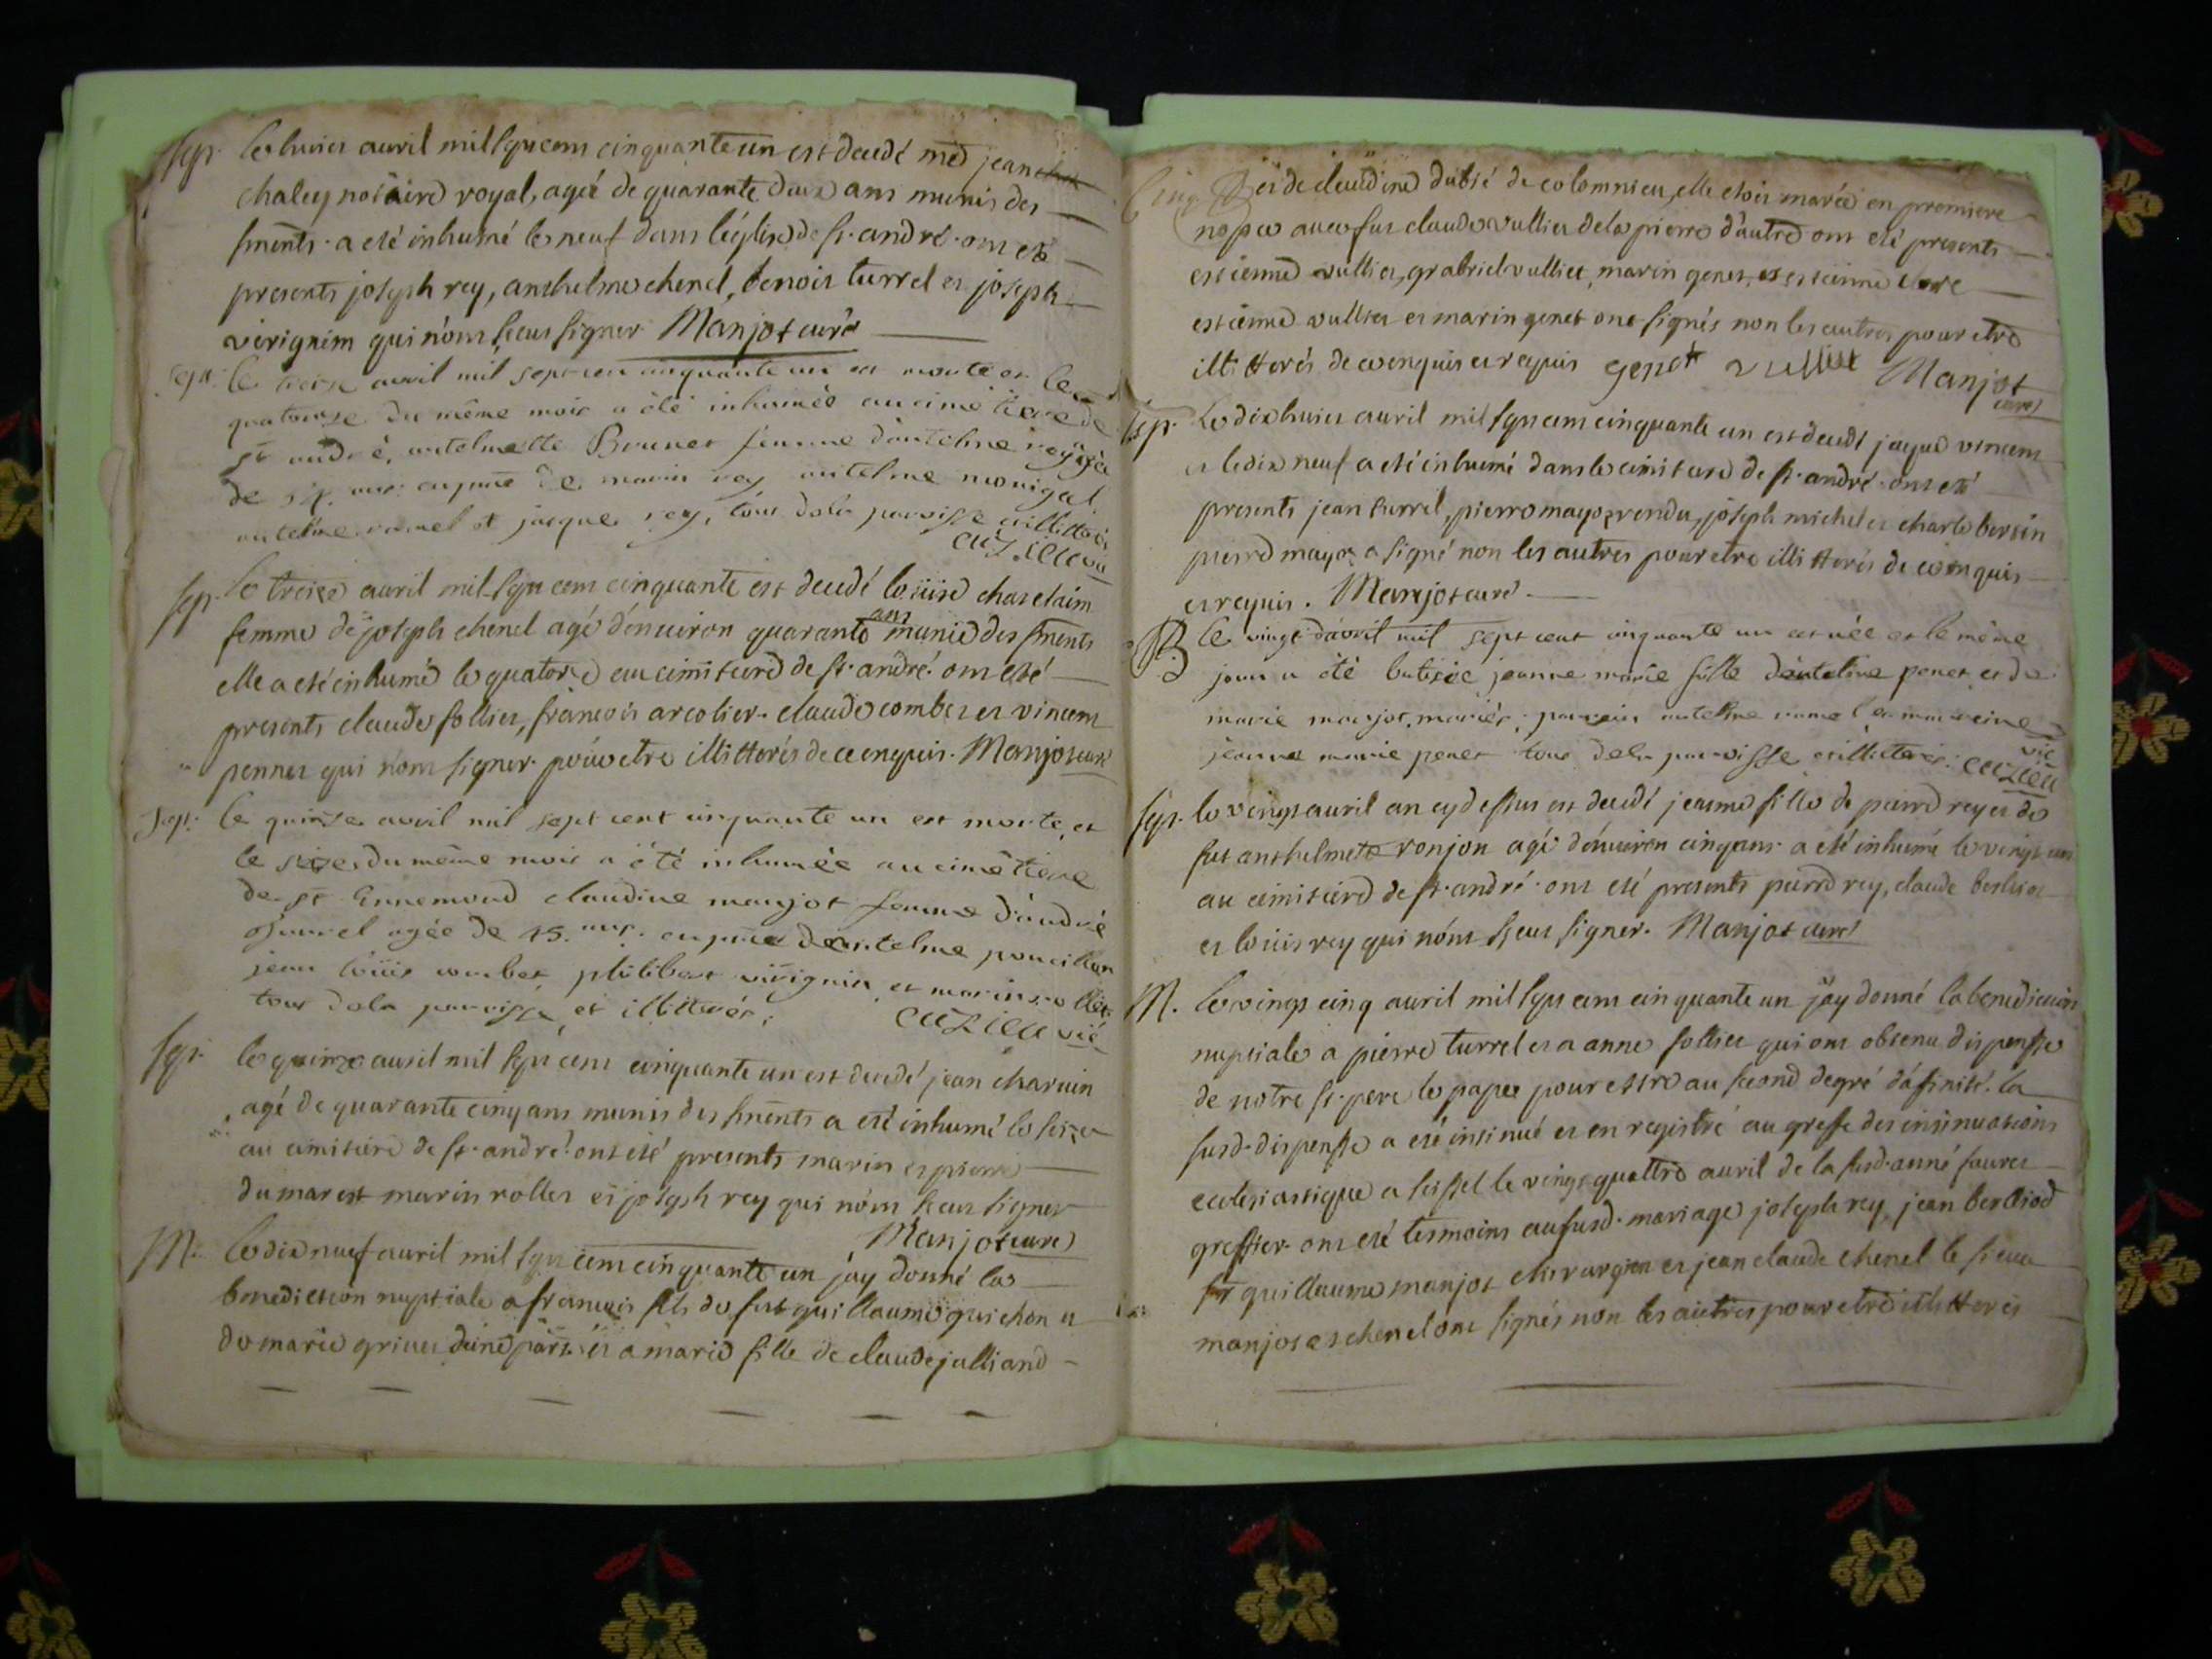 sep. le huict auril mil sept cent cinquante un est decedé me jean
chaley notaire royal, agé de quarante deux ans munis des
sments. a eté inhumé le neuf dans l'églize de st. andré. ont eté
presents joseph rey, anthelme chenel, benoit turrel et joseph
virignim qui n'ont sceus signer Manjot curé
sept. le treize avril mil sept cent cinquante un est morte et le
quatorze du même mois a été inhumée au cimetiere de
st andré, antelmette Brunet femme d'antelme rey agée
de ans. en pnce de marin rey antelme monigal
antelme ramel et jacques rey, tous de la paroisse et illitterés
cuzieu vic
sep. le treize auril mil sept cent cinquante est decedé loüise chatelaim
femme de joseph chenel agé d'enuiron quarante ans munie des sments
elle a eté inhumé le quatorze au cimitierd de st. andré. ont eté
presents claude follier, françois arcolier. claude combet et vincent
pennet qui n'ont signer. pour etre illitterés de ce enquis. Manjot curé
sept. le quinze avril mil sept cent cinquante un est morte, et
le seize du même mois a été inhumée au cimêtiere
de st Ennemond claudine manjot femme d'andré
agée de 45. ans. en pnce d'antelme poncillon
jean loüis combet, philibert virignin et marin rollet
tous de la paroisse, et illitterés; cuzieu vic
sep. le quinze auril mil sept cent cinquante un est decedé jean charuin
agé de quarante cinq ans munis des sments a eté inhumé le seize
au cimitiere de st. andré. ont eté presents marin et pierre
dumarest marin rollet et joseph rey qui n'ont sceus signer
Manjot curé
M. le dix neuf auril mil sept cent cinquante un j'ay donné la
benediction nuptiale a francois fils de fut guillaume guichon et
de marie griuet d'une part et a marie fille de claude julliand
et de claudine dubié de colomnieu, elle etoit mariée en premiere
nopce auec fut claude vullier de la pierre d'autre ont eté presents
estienne vullier, gabriel vulliet, marin genet, et estienne
estienne vullier et marin genet ont signés non les autres pour etre
illitterés de ce enquis et requis genet vulliet Manjot
curé
sep. Le dix huict auril mil sept cent cinquante un est decedé jaque vincent
et le dix neuf a eté inhumé dans le cimitiere de st. andré. ont eté
presents jean turrel, pierre mayot, joseph michel et charle bersin
pierre mayot a signé non les autres pour etre illitterés de ce enquis
et requis. Manjot curé
B le vingt d'avril mil sept cent cinquante un est née et le même
jour a été batisée jeanne marie fille d'antelme penet et de
marie manjot, mariés; parrain antelme ramel et marreine
jeanne marie penet tous de la paroisse et illitterés. cuzieu vic
sep. le vingt auril an cy dessus est decedé jeanne fille de pierre rey et de
fut anthelmete ronjon agé d'enuiron cinq ans. a eté inhumé le vingt un
au cimitiere de st. andré. ont eté presents pierre rey, claude berlier
et loüis rey qui n'ont sceus signer. Manjot curé
M. le vingt cinq auril mil sept cent cinquante un j'ay donné la benediction
nuptiale a pierre turrel et a anne follier qui ont obtenu dispense
de notre st. pere le pape pour estre au second degré d'afinité. la
susd. dispense a eté insinué et en registré au greffe des insinuations
eclesiastique a seissel le vingt quattre auril de la susd. anné fauret
greffier. ont eté tesmoins au susd. mariage joseph rey, jean berlliod
sr guillaume manjot chirurgien et jean claude chenel le sieur
manjot et chenel ont signés non les autres pour etre illitterés